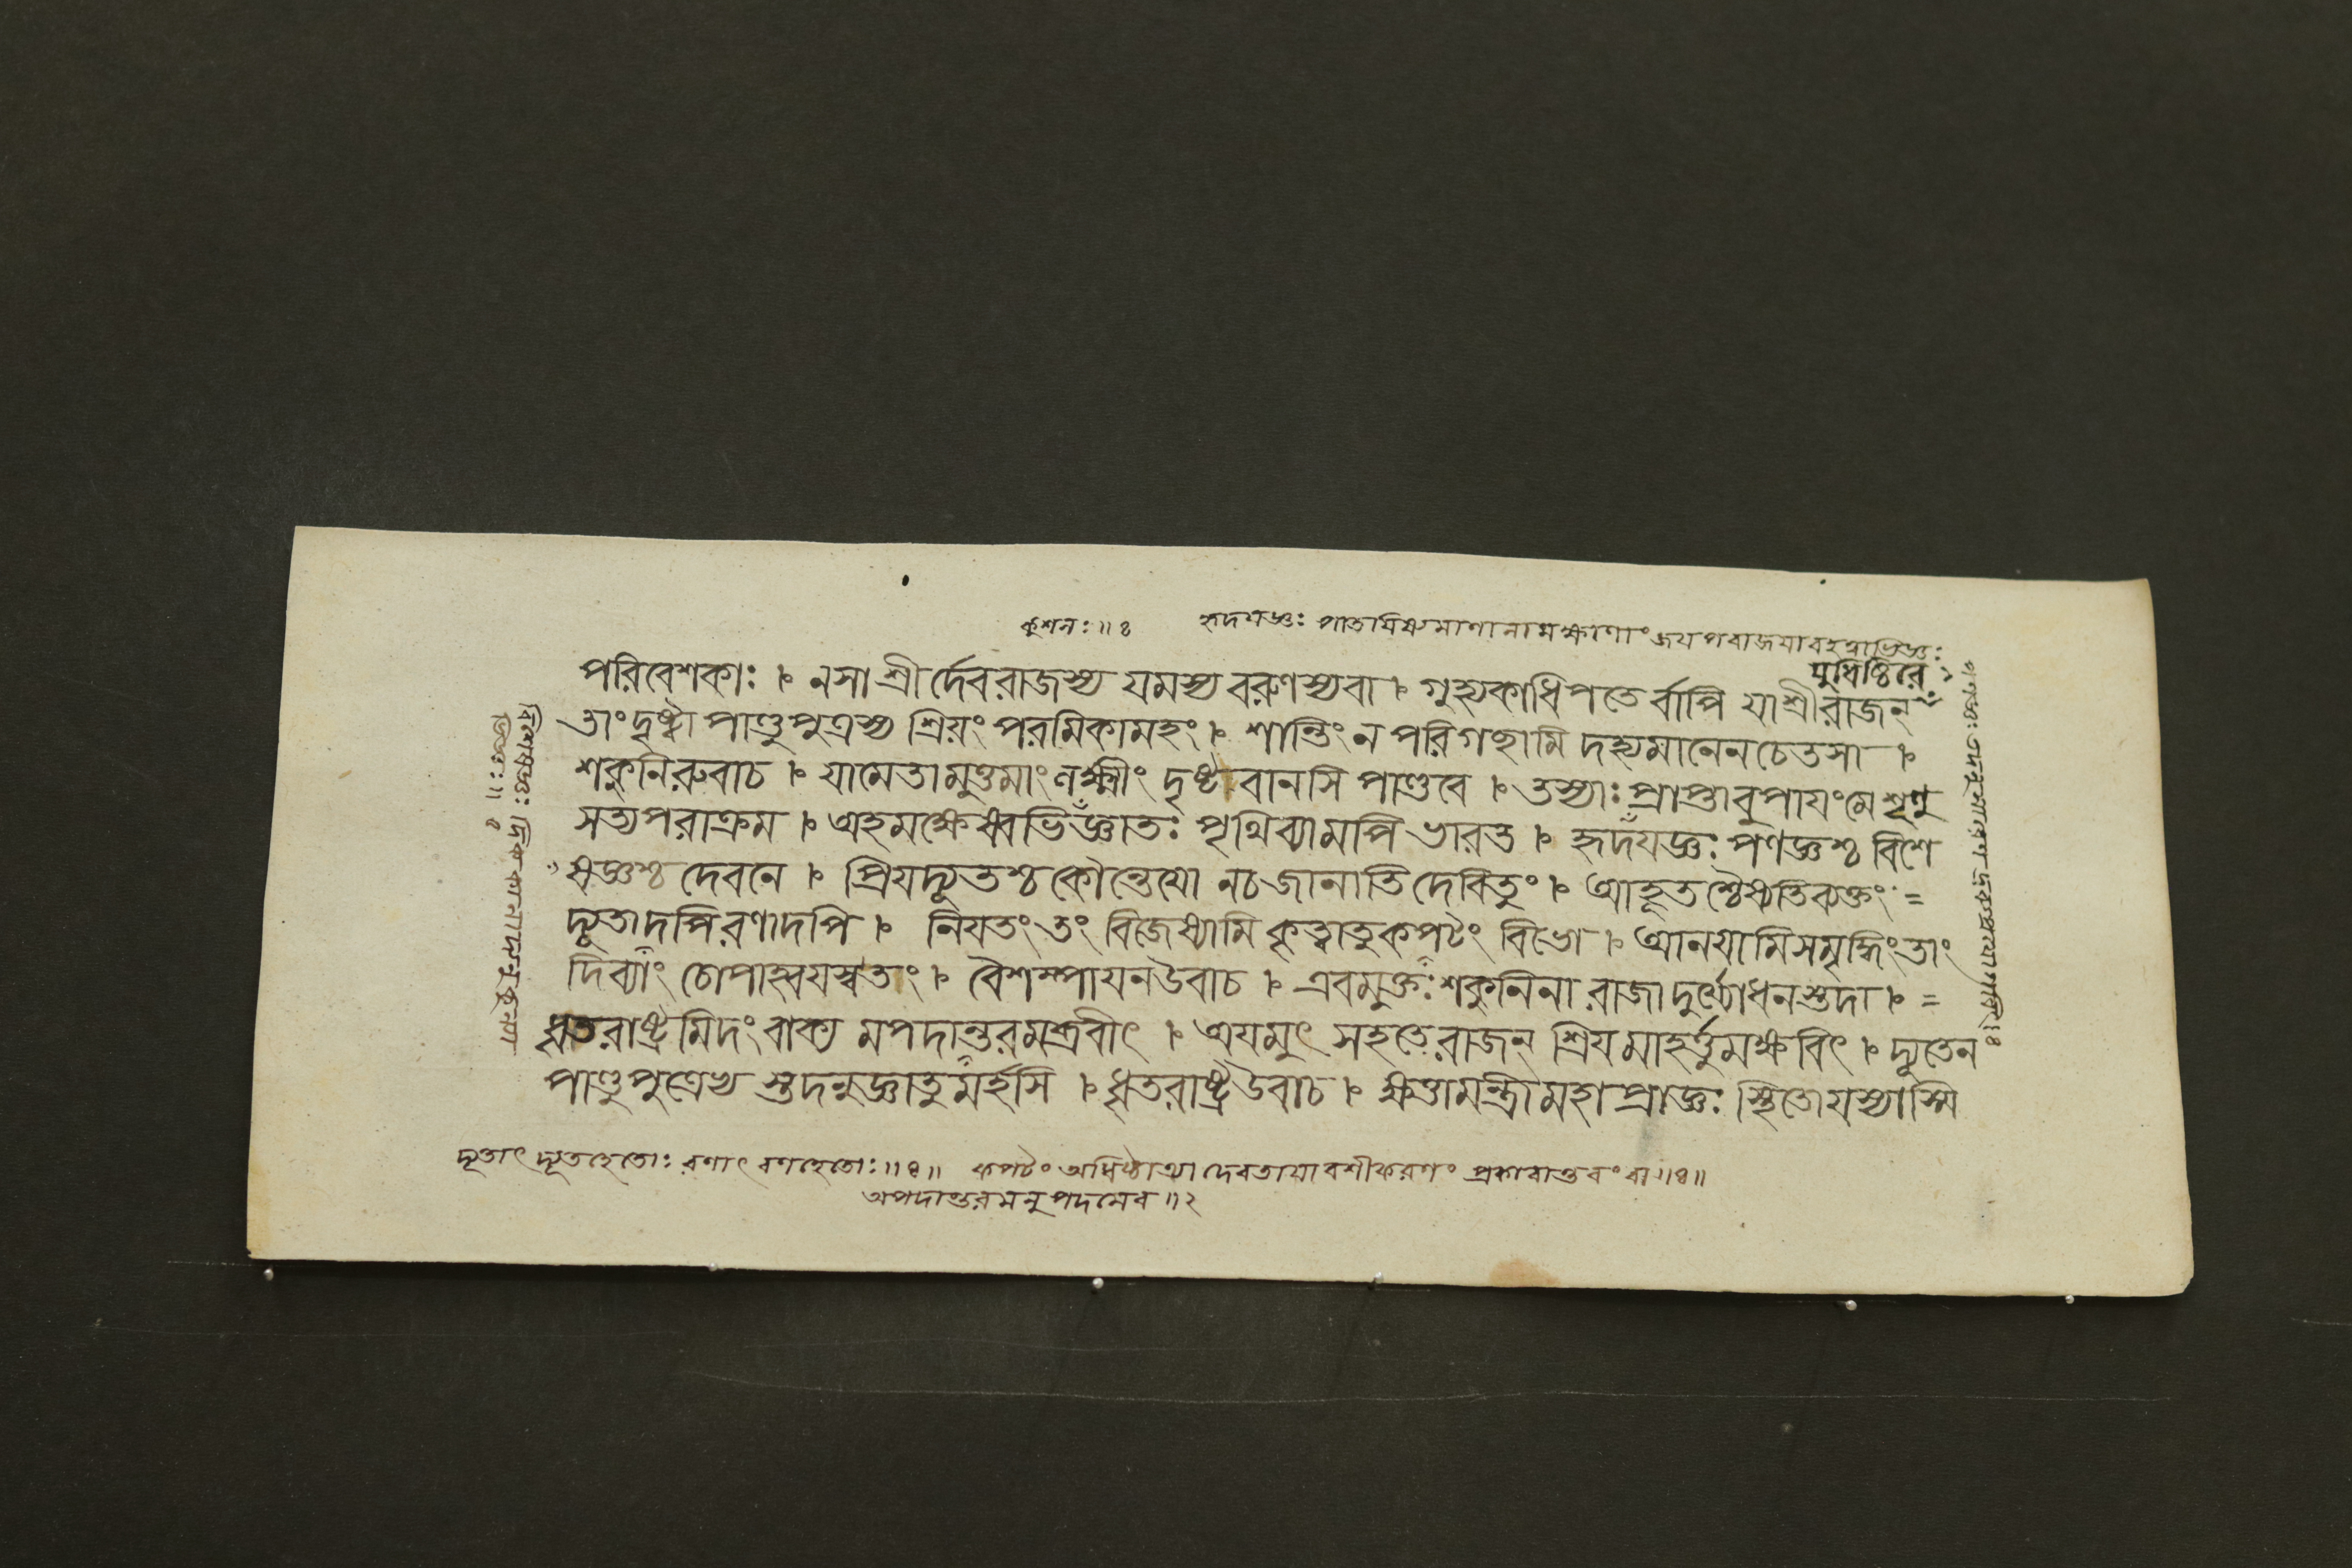 কুশলঃ॥৪ হৃদযজ্ঞঃ পাতযিষ্যমাণানামক্ষাণাং জযপরাজযাবহত্বাভিজ্ঞঃ
যুধিষ্ঠিরে
পরিবেশকাঃ । নসাশ্রীর্দেবরাজস্য যমস্য বরুণস্যবা । গুহ্যকাধিপতের্বাপি যাশ্রীরাজন্
তাংদৃষ্ট্বা পাণ্ডুপুত্রস্য শ্রিয়ং পরমিকামহং । শান্তিং ন পরিগছামি দহ্যমানেনচেতসা ।
শকুনিরুবাচ । যামেতামুত্তমাং লক্ষ্মীং দৃষ্টবানসি পাণ্ডবে । তস্যাঃ প্রাপ্তাবুপাযংমে শৃণু
সত্যপরাক্রম । অহমক্ষেষ্বভিজ্ঞাতঃ পৃথিব্যামপি ভারত । হৃদযজ্ঞঃ পণজ্ঞশ্চ বিশে
ষজ্ঞশ্চ দেবনে । প্রিযদ্যূতশ্চ কৌন্তেযো নচ জানাতি দেবিতুং । আহূতশ্চৈষ্যতিব্যক্তং =
দ্যূতাদপিরণাদপি । নিযতং তং বিজেষ্যামি কৃত্বাতুকপটং বিভো । আনযামিসমৃদ্ধিংতাং
দিব্যাং চোপাহ্বযস্বতং । বৈশম্পাযনউবাচ । এবমুক্তঃ শকুনিনা রাজা দুর্য্যোধনস্তদা । =
ধৃতরাষ্ট্রমিদং বাক্য মপদান্তরমব্রবীৎ । অযমুৎ সহতে রাজন্ শ্রিযমাহর্ত্তুমক্ষবিৎ । দ্যূতেন
পাণ্ডুপুত্রেভ্য স্তদনুজ্ঞাতুমর্হসি । ধৃতরাষ্ট্রউবাচ । ক্ষত্তামন্ত্রীমহাপ্রাজ্ঞঃ স্থিতোযস্যাস্মি
দ্যূতাৎ দ্যূতহেতোঃ রণাৎ রণহেতোঃ॥৪॥ কপটং অধিষ্ঠাত্র্যা দেবতাযা বশীকরণং প্রকারান্তরং বা॥৪॥
অপদান্তরমনুপদমেব॥২